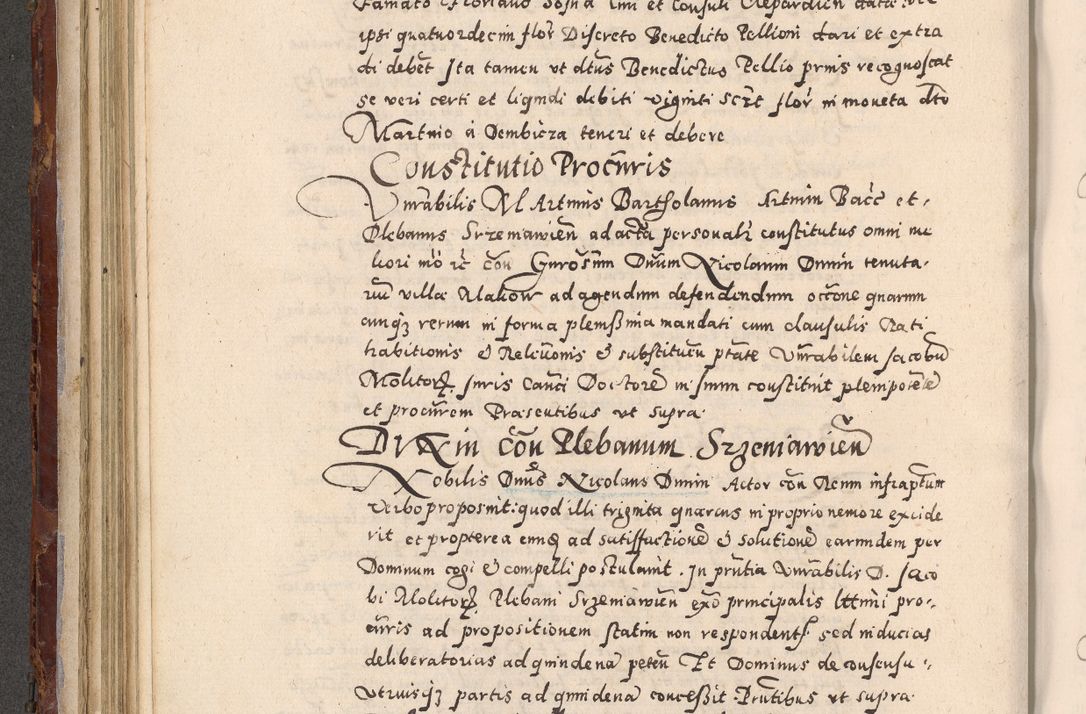 Famato Floriano Sosna Cini et Consuli Clepardien
ipsi quatuordecim flor Discreto Benedicto Pellioni dari et extra
di debet Ita tamen ut dtus Benedictus Pellio prius recognoscat
se veri certi et liqmdi debiti viginti flor in moneta dto
Martino á Dembicza teneri et debere
Constitutio Procuris
Vnrabilis M Artinus Bartholanus Artium Bacc et
Plebanus Srzemawien ad acta personalr constitutus omni me
liori mo con Gnrosum Dnum Nicolaum Dunin tenuta-
riu villæ Makow ad agendum defendendum occone quarum
cunqz rerum in forma plenissima mandati cum clausulis Rati
habitionis & Relevonis & substituen ptate Vnrabilem Jacobu
Molitor Juris Canci Doctore in suum constituit plenipotete
et procurem Præsentibus ut supra
Dunin con Plebanum Srzeniawien
Nobilis Dnus Nicolaus Dunin Actor con Reum infraptum
Verbo proposuit: quod illi triginta quarcus in proprio nemore excide
rit et propterea eumq ad satisfactione & solutione earundem per
Dominum cogi & compelli postulavit. In pntia Vnrabilis D. Jaco
bi Molitor Plebani Srzeniawien exo principalis lttimi pro-
curis ad propositionem statim non respondent sed inducias
deliberatorias ad quindena peten Et Dominus de consensu
utriusqz partis ad quindena concessit Pntibus ut supra